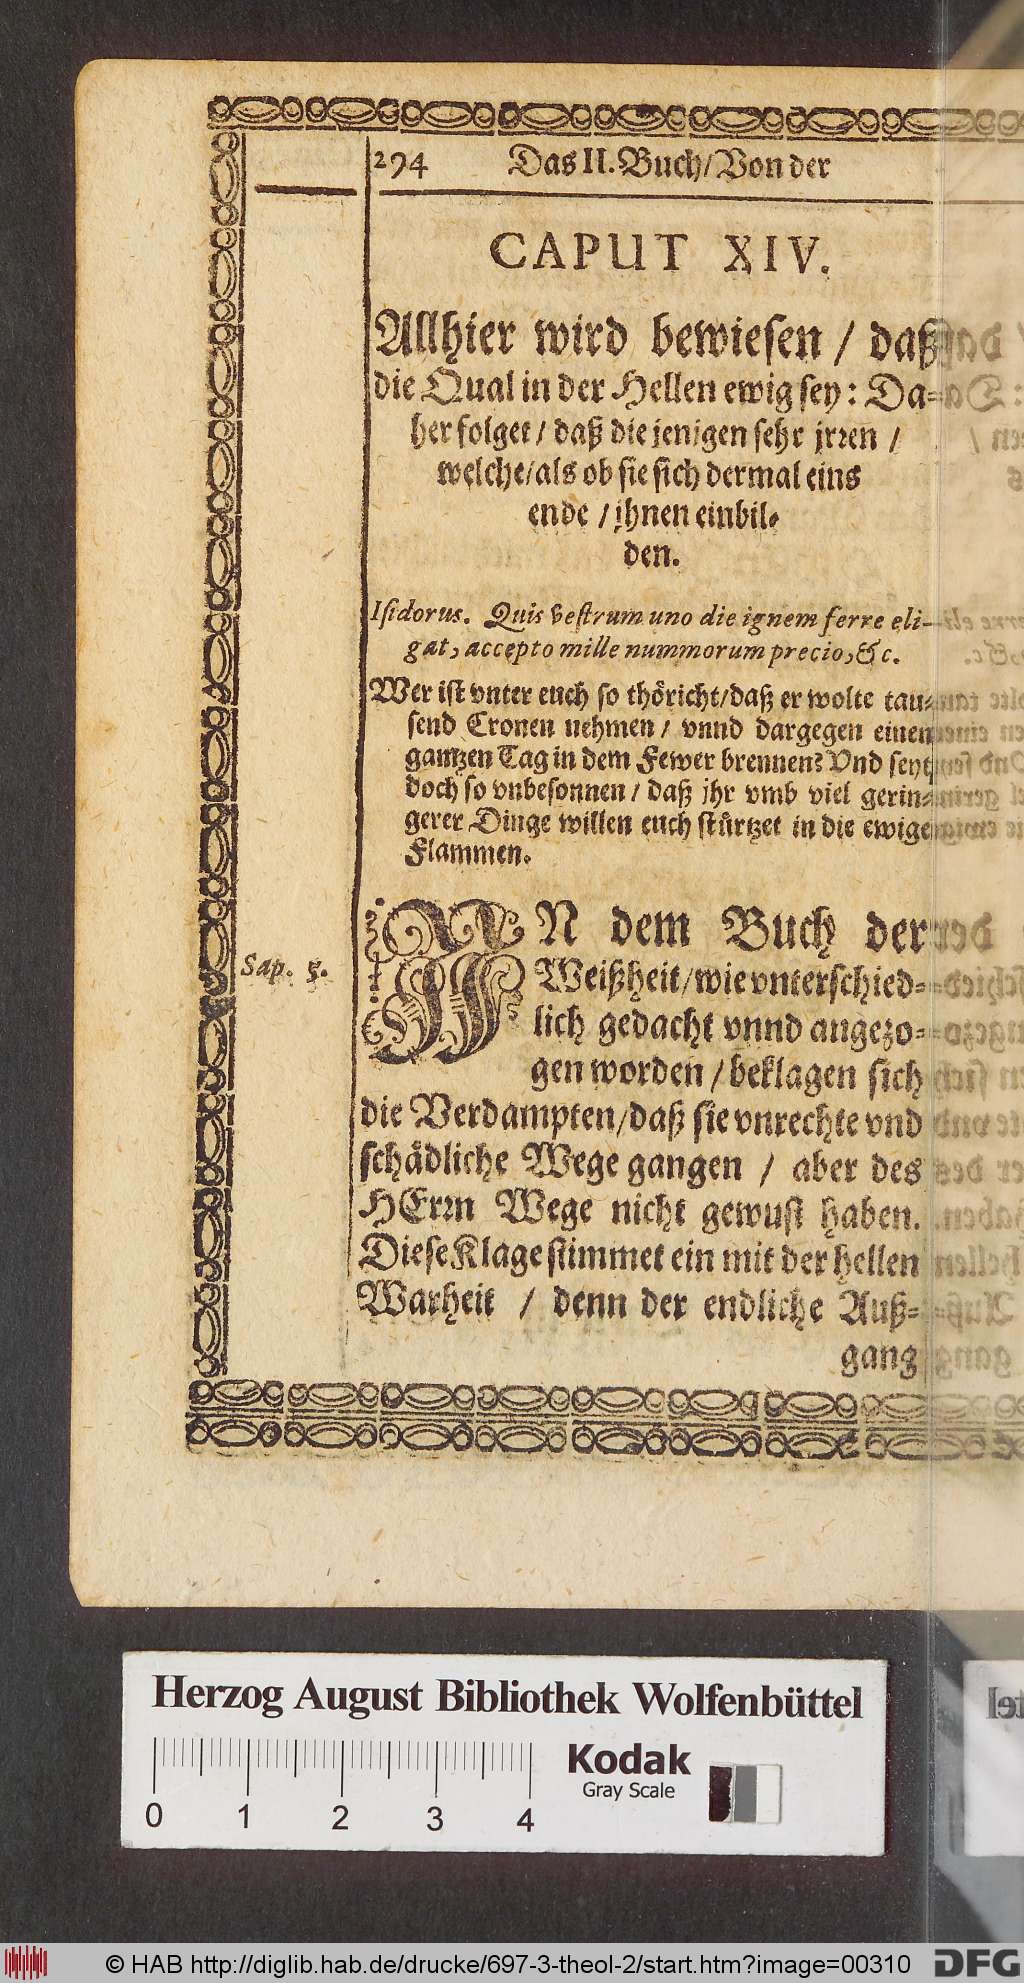 294 Das II. Buch/Von der
CAPUT XIV.
Allhier wird bewiesen / daß
die Qual in der Hellen ewig sey: Da-
her folget / daß die jenigen sehr jrren /
welche/als ob sie sich dermal eins
ende / jhnen einbil-
den.
Isidorus. Quis vestrum uno die ignem ferre eli-
gat, accepto mille nummorum precio, &c.
Wer ist vnter euch so thöricht/daß er wolte tau-
send Cronen nehmen / vnnd dargegen einen
gantzen Tag in dem Fewer brennen? Vnd seyt
doch so vnbesonnen / daß jhr vmb viel gerin-
gerer Dinge willen euch stürtzet in die ewige
Flammen.
IN dem Buch der
Sap. 5.
Weißheit/wie vnterschied-
lich gedacht vnnd angezo-
gen worden / beklagen sich
die Verdampten/daß sie vnrechte vnd
schädliche Wege gangen / aber des
HErrn Wege nicht gewust haben.
Diese Klage stimmet ein mit der hellen
Warheit / denn der endliche Auß-
gang
Herzog August Bibliothek Wolfenbüttel
Kodak
Gray Scale
0 1 2 3 4
© HAB http://diglib.hab.de/drucke/697-3-theol-2/start.htm?image=00310
DFG